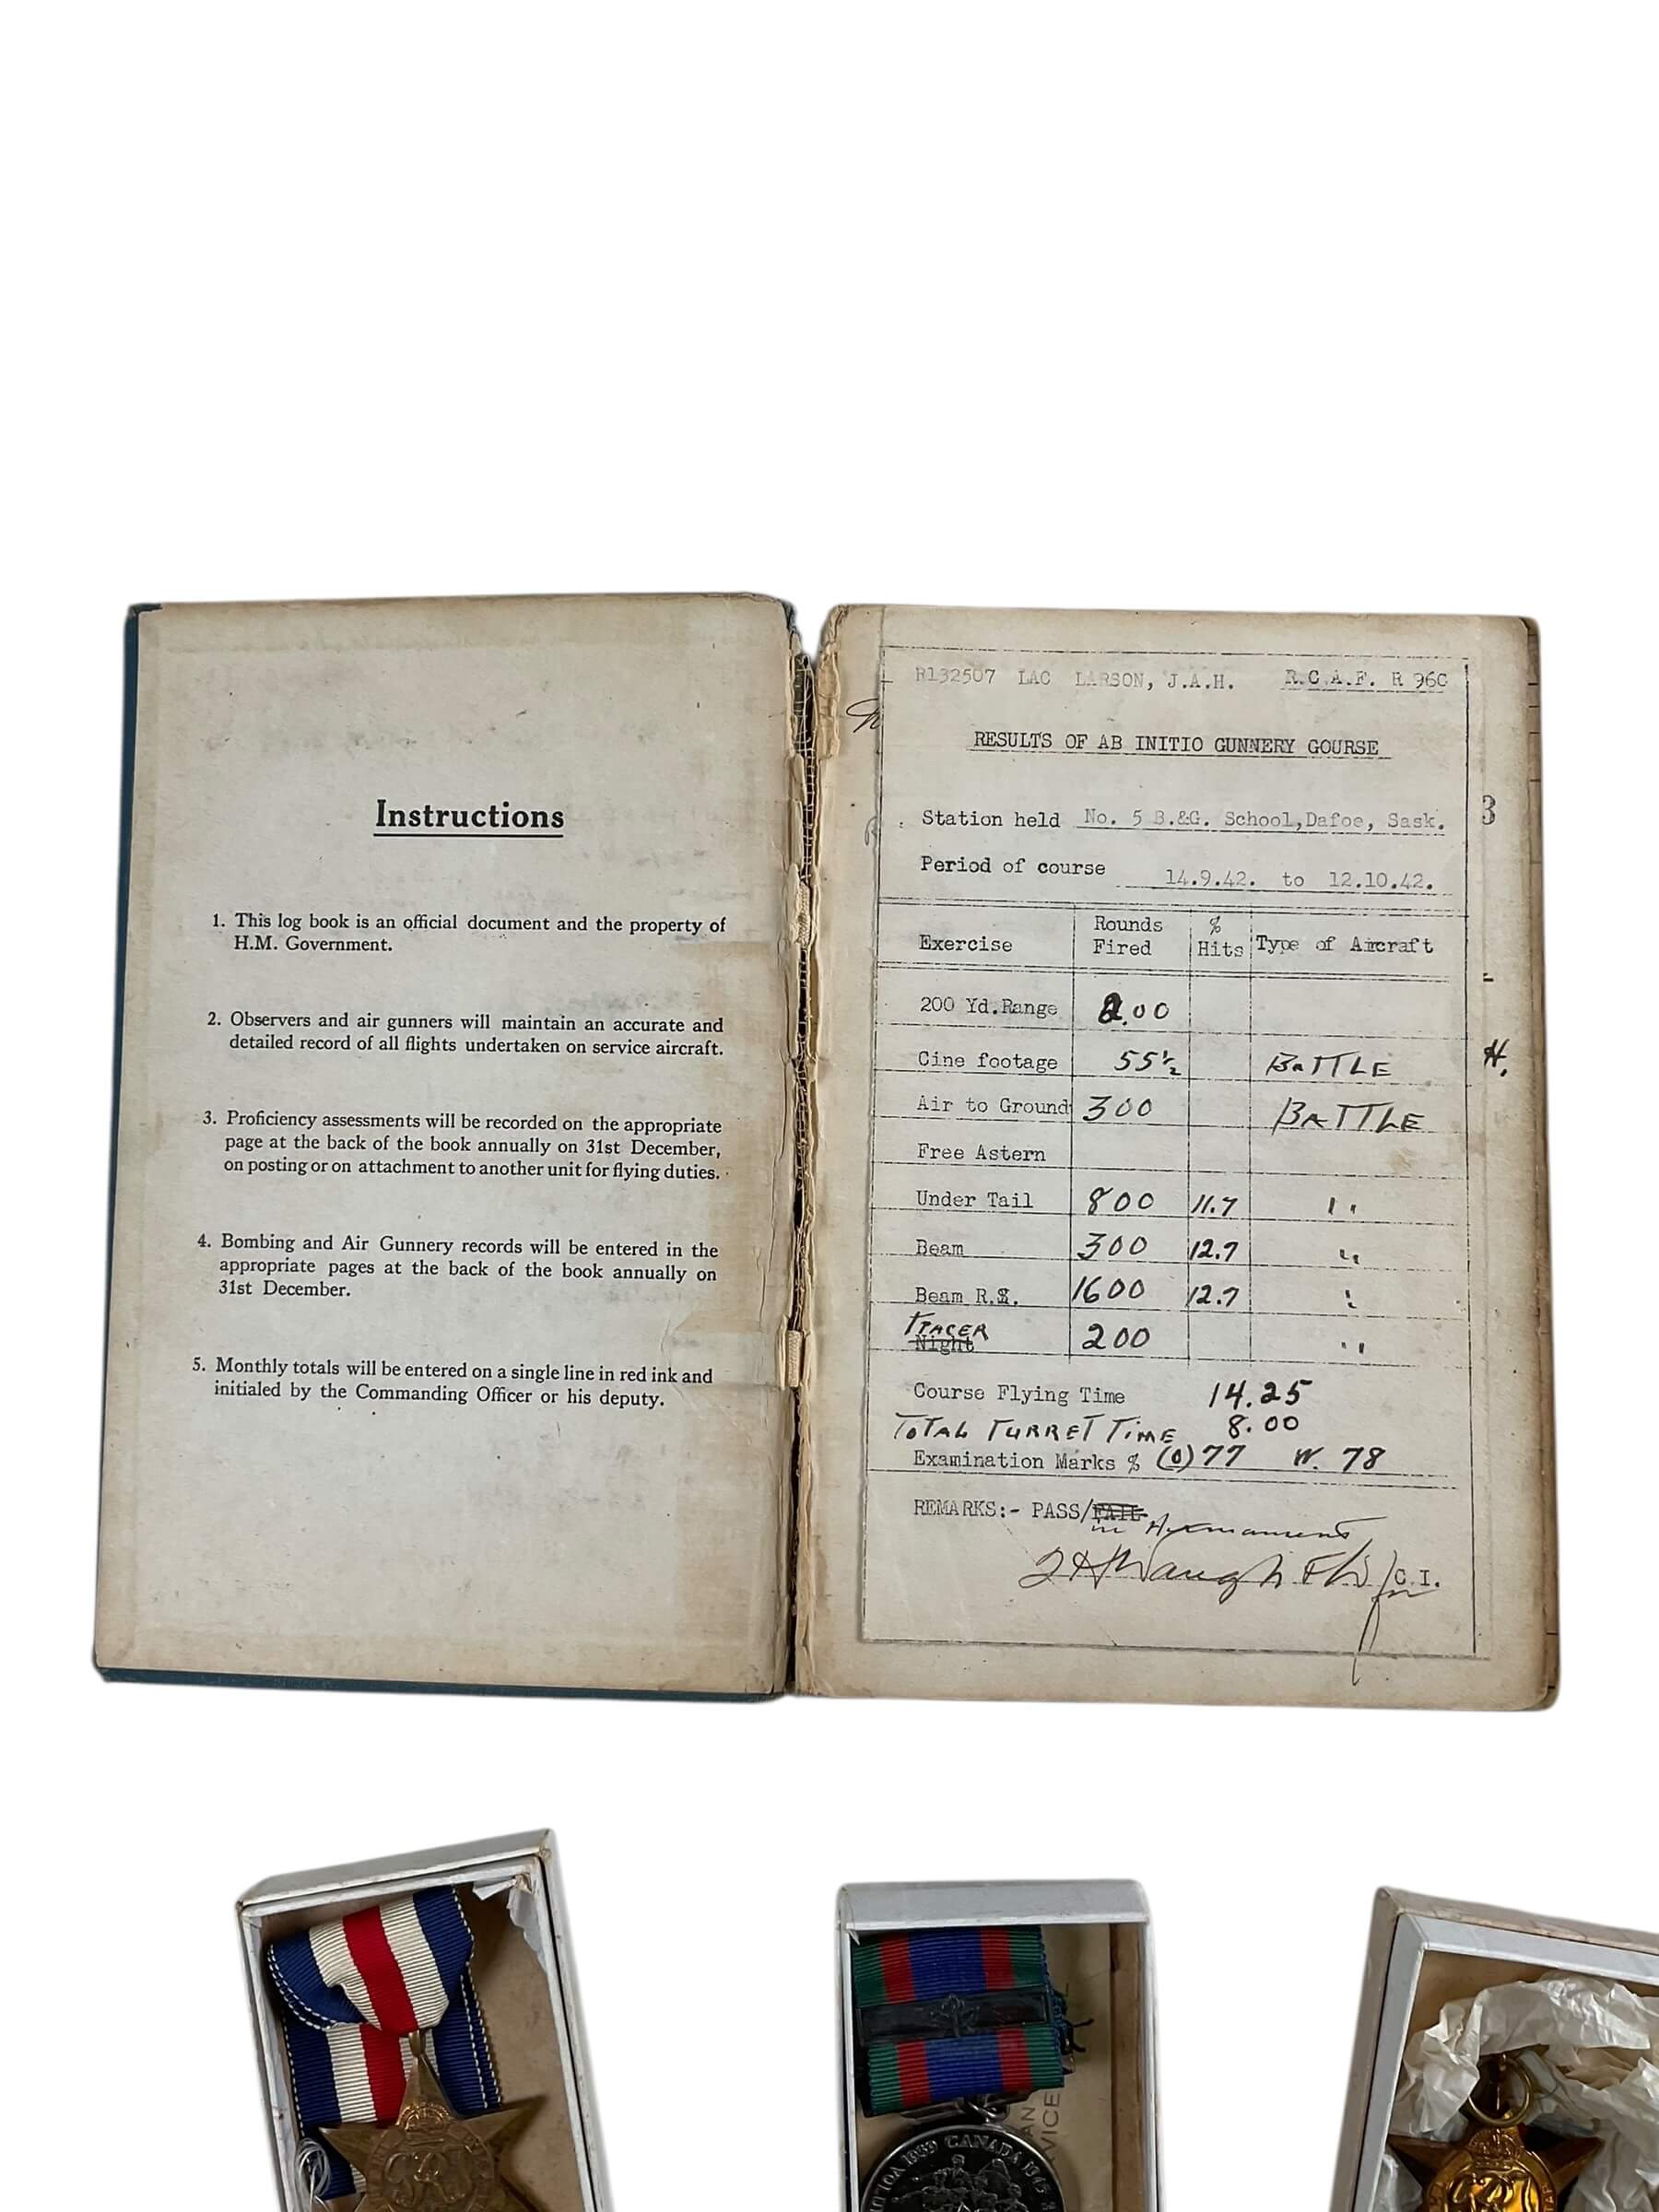 Instructions
1. This log book is an official document and the property of
H.M. Government.
2. Observers and air gunners will maintain an accurate and
detailed record of all flights undertaken on service aircraft.
3. Proficiency assessments will be recorded on the appropriate
page at the back of the book annually on 31st December,
on posting or on attachment to another unit for flying duties.
4. Bombing and Air Gunnery records will be entered in the
appropriate pages at the back of the book annually on
31st December.
5. Monthly totals will be entered on a single line in red ink and
initialed by the Commanding Officer or his deputy.
R132507 LAC LARSON, J.A.H. R.C.A.F. R 96C
RESULTS OF AB INITIO GUNNERY GOURSE
Station held No. 5 B.&G. School, Dafoe, Sask.
3
Period of course 14.9.42. to 12.10.42.
Exercise Rounds Fired % Hits Type of Aircraft
200 Yd. Range 200
Cine footage 55½ BATTLE
H.
Air to Ground 300 BATTLE
Free Astern
Under Tail 800 11.7 "
Beam 300 12.7 "
Beam R.S. 1600 12.7 "
TRACER
Night 200 "
Course Flying Time 14.25
TOTAL TURRET TIME 8.00
Examination Marks % (O) 77 W. 78
REMARKS:- PASS/FAIL
C.I.
1939 CANADA 1945